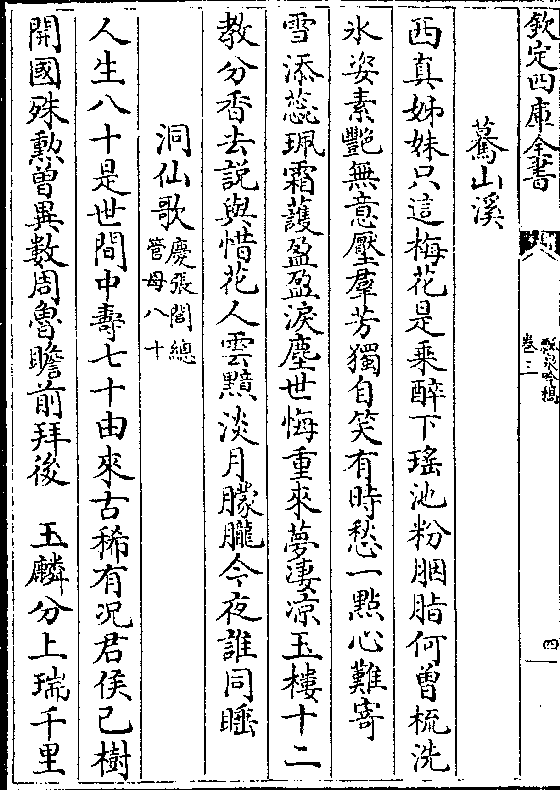 欽定四庫全書
瓢泉吟稿
卷三
四
驀山溪
西真姊妹只這梅花是乗醉下瑤池粉胭脂何曾梳洗
氷姿素艷無意壓羣芳獨自笑有時愁一點心難寄
雪添蕊珮霜䕶盈盈淚塵世悔重來夢淒凉玉樓十二
教分香去説與惜花人雲黯淡月朦朧今夜誰同睡
洞仙歌慶張閻總管母八十
人生八十是世間中壽七十由來古稀有况君侯已樹
開國殊勲曽異數周魯瞻前拜後　玉麟分上瑞千里